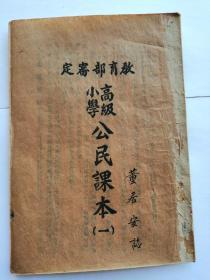 教育部審定
高級
小學
公民課本
（一）
董居安誌